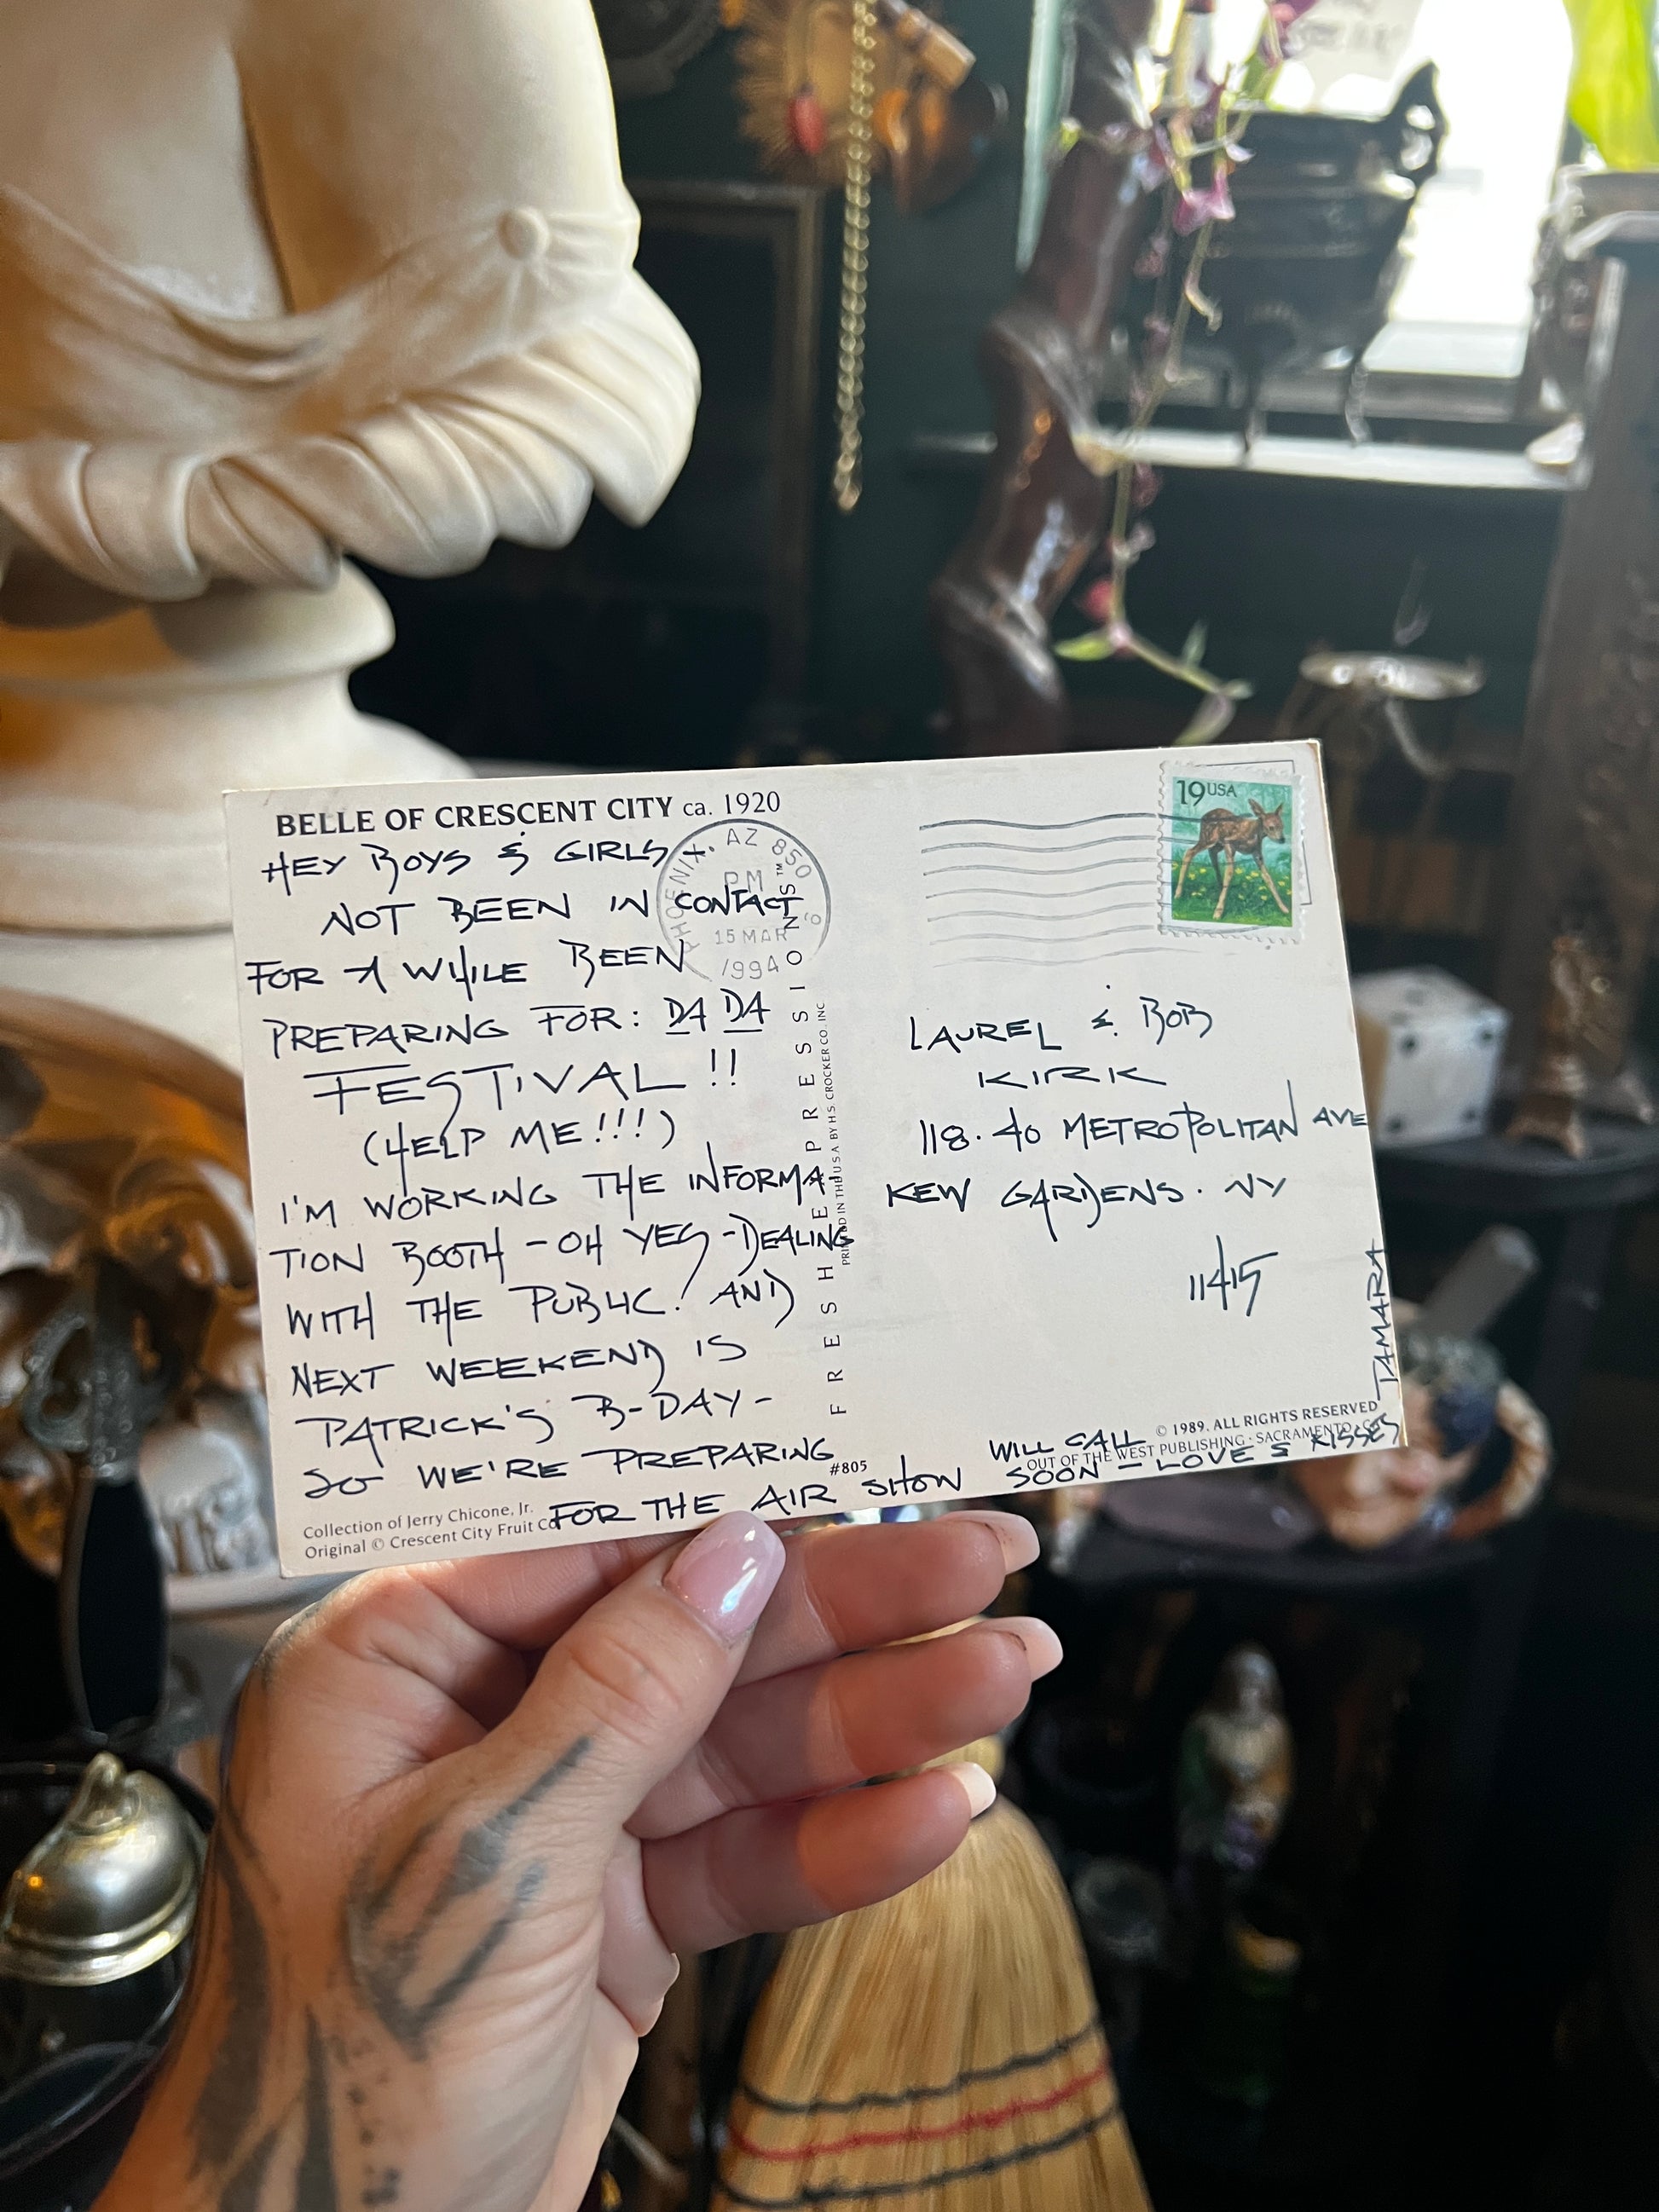 BELLE OF CRESCENT CITY ca. 1920
HEY BOYS & GIRLS.
NOT BEEN IN CONTACT
FOR A WHILE BEEN
PREPARING FOR: DA DA
FESTIVAL!!
(HELP ME!!!)
I'M WORKING THE INFORMA-
TION BOOTH - OH YES - DEALING
WITH THE PUBLIC! AND
NEXT WEEKEND IS
PATRICK'S B-DAY -
SO WE'RE PREPARING
FOR THE AIR SHOW
WILL CALL
SOON - LOVE & KISSES
TAMARA
Collection of Jerry Chicone, Jr.
Original © Crescent City Fruit Co
#805
PHOENIX, AZ 850
PM
15 MAR
1994
FRESH EXPRESSIONS™
PRINTED IN THE U S A BY H.S. CROCKER CO. INC
19USA
LAUREL & BOB
KIRK
118.40 METROPOLITAN AVE
KEW GARDENS. NY
11415
© 1989. ALL RIGHTS RESERVED
OUT OF THE WEST PUBLISHING · SACRAMENTO, CA